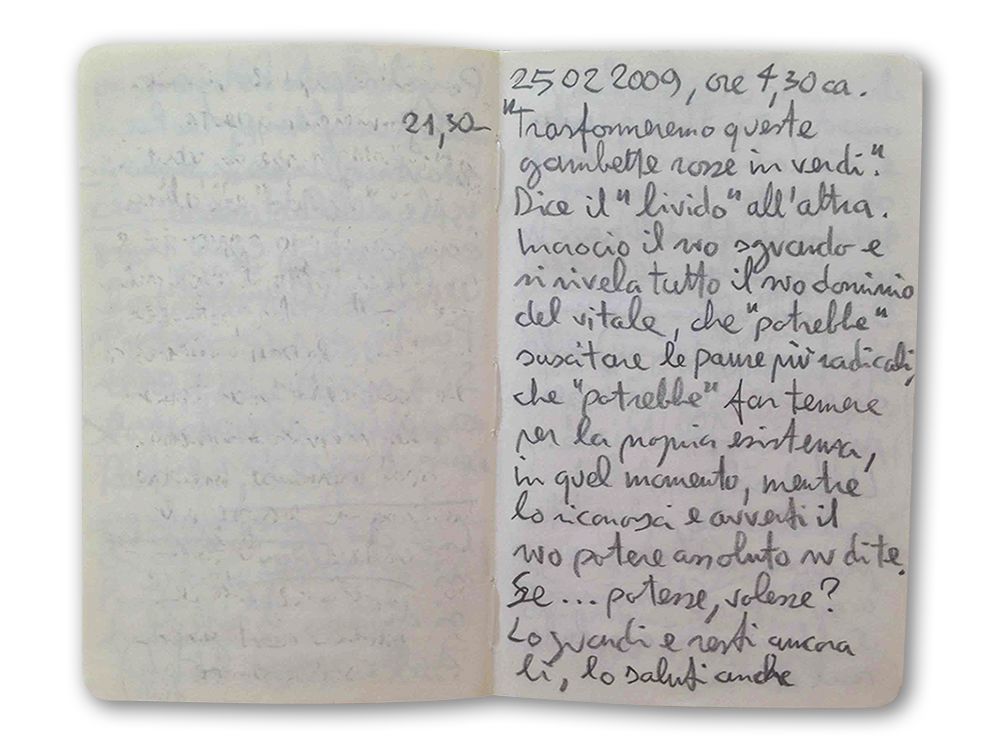 21,30
25 02 2009, ore 4,30 ca.
"Trasformeremo queste
gambette rosse in verdi".
Dice il "livido" all'altra.
Incrocio il suo sguardo e
si rivela tutto il suo dominio
del vitale, che "potrebbe"
suscitare le paure più radicali,
che "potrebbe" far temere
per la propria esistenza,
in quel momento, mentre
lo riconosci e avverti il
suo potere assoluto su di te.
Se ... potesse, volesse?
Lo guardi e resti ancora
lì, lo saluti anche